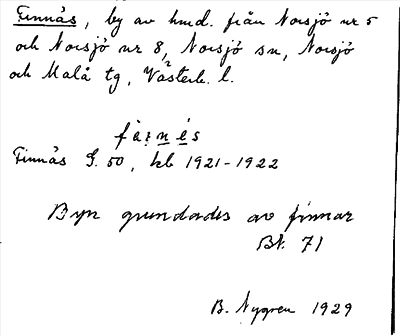 Finnås, by av hmd. från Norsjö nr 5
och Norsjö nr 8, Norsjö sn, Norsjö
och Malå tg, Västerb. l.
Finnås G. 50, kb 1921-1922
Byn grundades av finnar
Bl. 71
B. Nygren 1929